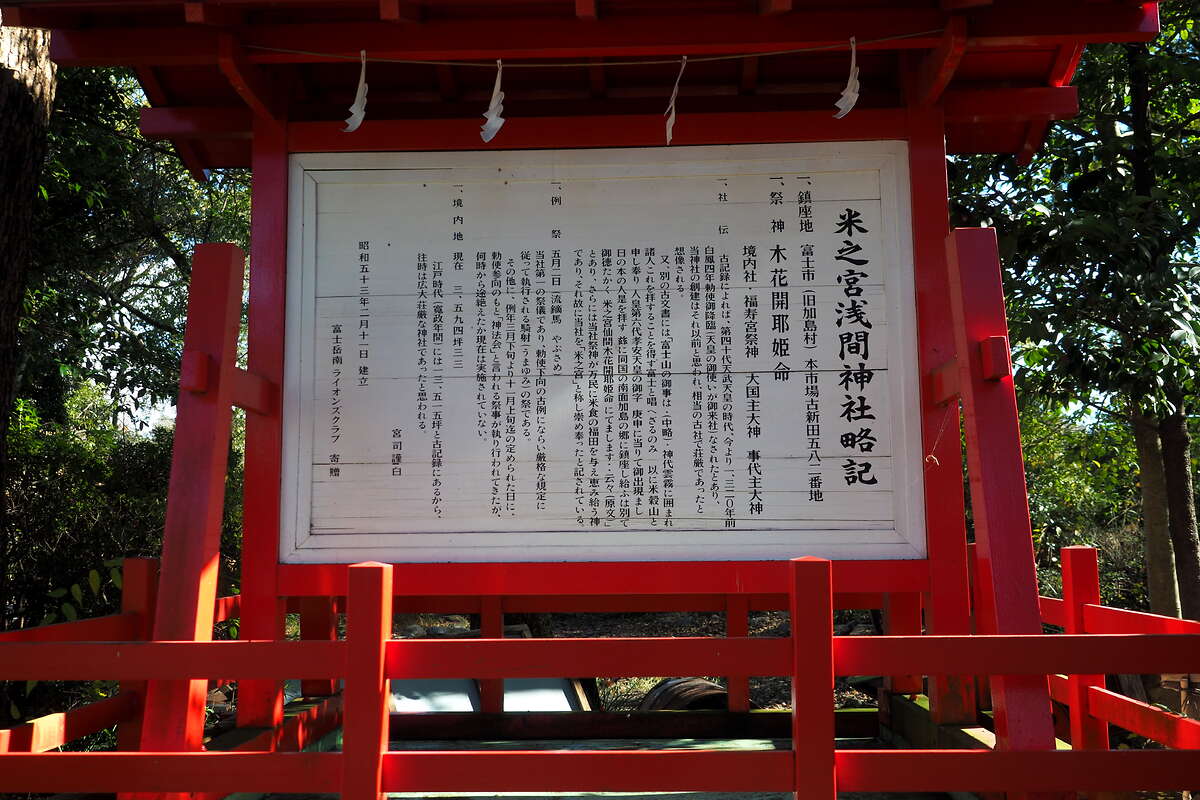 米之宮浅間神社略記
一、鎮座地 富士市(旧加島村)本市場古新田五八二番地
一、祭神 木花開耶姫命
境内社・福寿宮祭神 大国主大神 事代主大神
一、社伝 古記録によれば、第四十代天武天皇の時代、今より一、三一〇年前
白鳳四年勅使御降臨(天皇の御使いが御来社)なされたとあり、
当神社の創建はそれ以前と思われ、相当の古社で荘厳であったと
想像される。
又、別の古文書には「富士山の御事は(中略)神代雲霧に囲まれ
諸人これを拝することを得す富士と唱へさるのみ 以に米穀山と
申し奉り 人皇第六代孝安天皇の御字 庚申に当りて御出現まし
日の本の人是を拝す 茲に同国の南面加島の郷に鎮座し給ふは別て
御徳たかく 米之宮仙間木花開耶姫命 にてまします・云々(原文)」
とあり、さらには当社祭神が万民に米食の福田を与え恵み給う神
であり、それ故に当社を「米之宮」と称し崇め奉ったと記されている。
一、例祭 五月二日 流鏑馬 やぶさめ
当社第一の祭儀であり、勅使下向の古例にならい厳格な規定に
従って執行される騎射(うまゆみ)の祭である。
その他に、例年三月下旬より十一月上旬迄の定められた日に、
勅使参向のもと「神法会」と言われる祭事が執り行われてきたが、
何時から途絶えたか現在は実施されていない。
一、境内地 現在 三、五九四坪三三
江戸時代(寛政年間)には一三、五一五坪と古記録にあるから、
往時は広大荘厳な神社であったと思われる。
宮司謹白
昭和五十三年二月十一日 建立
富士岳南ライオンズクラブ 寄贈